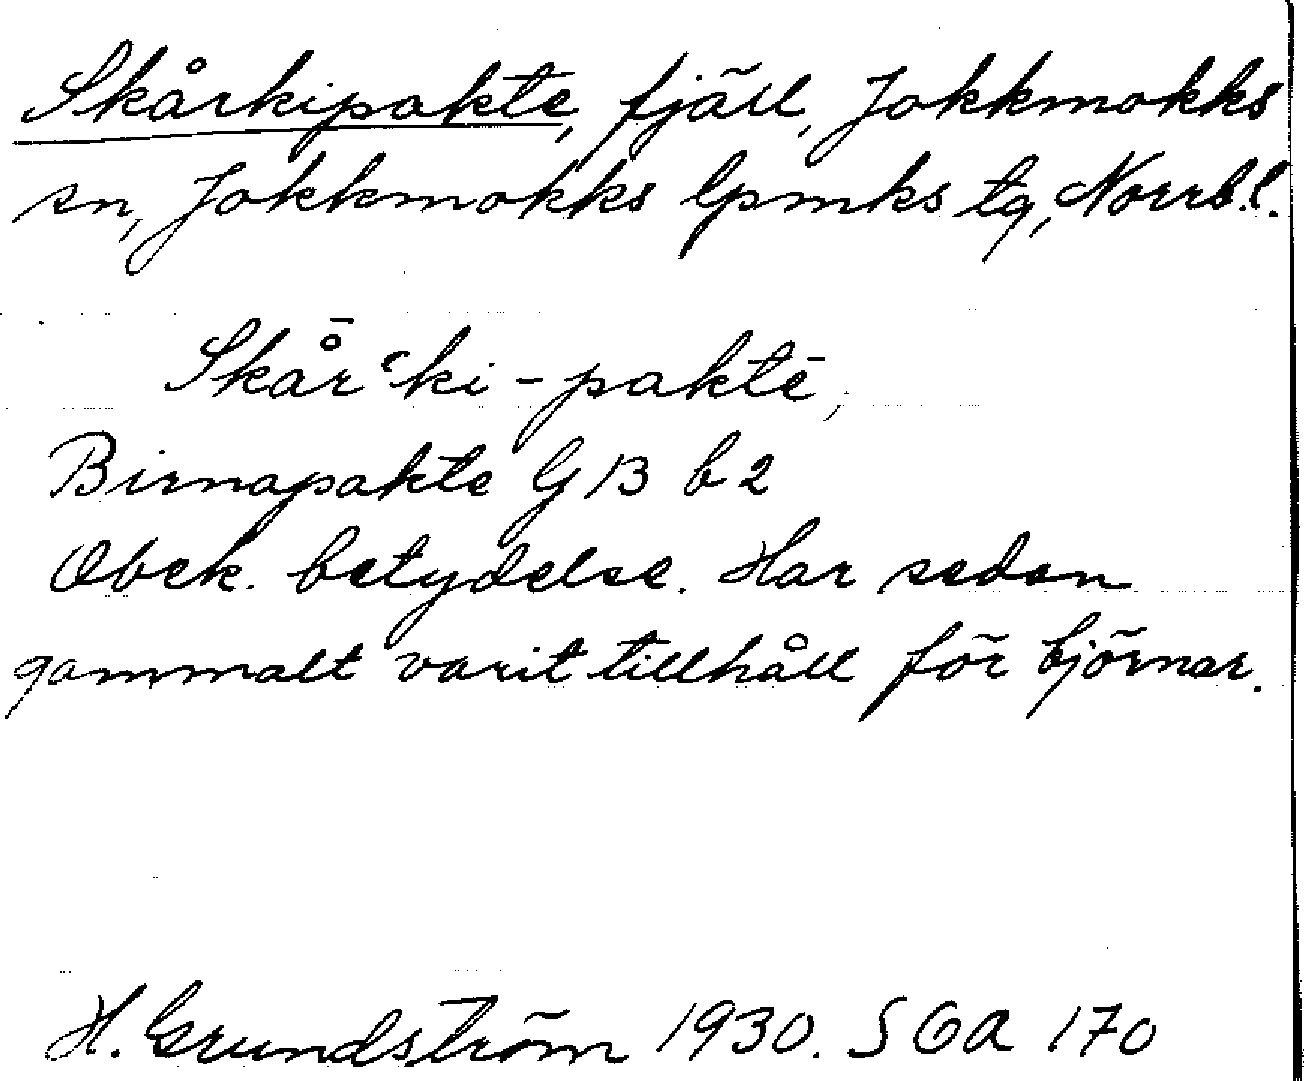 Skårkipakte, fjäll, Jokkmokks
sn, Jokkmokks lpmks tg, Norrb.l.
Skå̄rʿki-paktē,
Birnapakte G 13 b 2
Obek. betydelse. Har sedan
gammalt varit tillhåll för björnar.
H. Grundström 1930. SOA 170